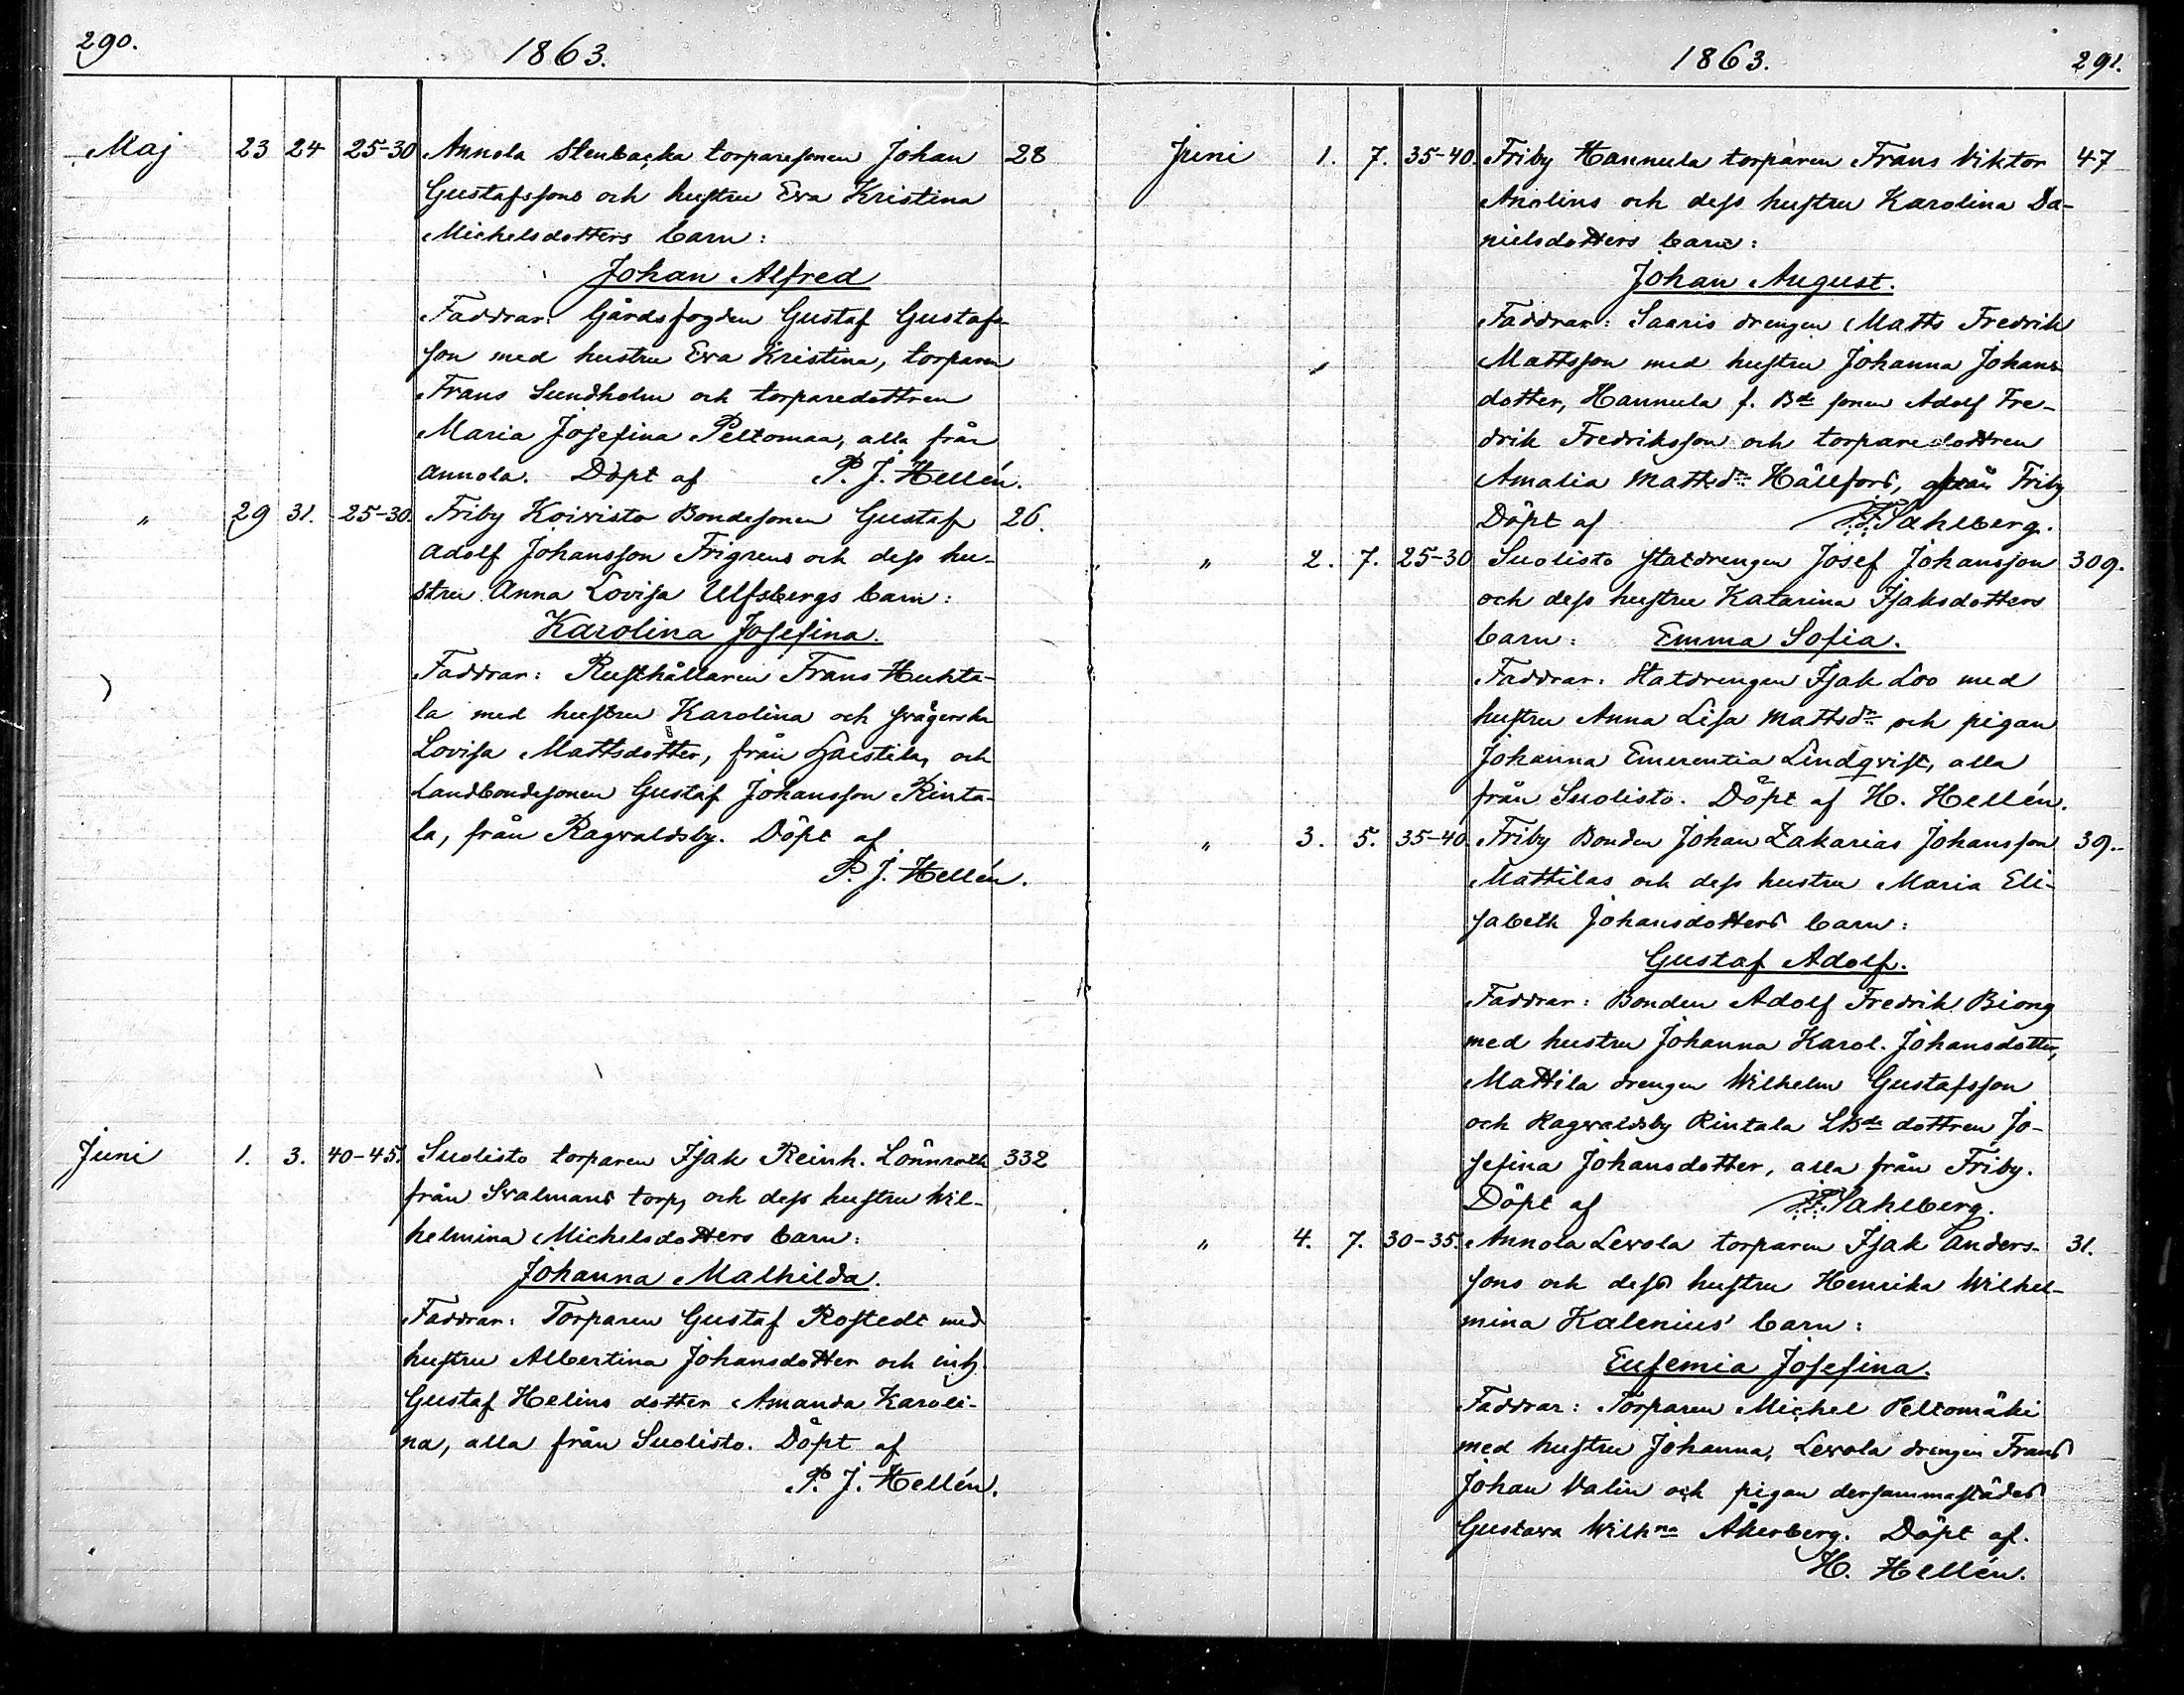 290.
1863.
Maj 23 24 25-30 Annola Stenbacka torparesonen Johan 28
Gustafssons och hustru Eva Kristina
Michelsdotters barn:
Johan Alfred
Faddrar: Gårdsfogden Gustaf Gustafs-
son med hustru Eva Kristina, torparen
Frans Sundholm och torparedottren
Maria Josefina Peltomaa, alla från
Annola. Döpt af P. J. Hellén.
" 29 31. 25-30. Friby Koivisto Bondesonen Gustaf 26.
Adolf Johansson Frigrens och dess hu-
stru Anna Lovisa Ulfsbergs barn:
Karolina Josefina.
Faddrar: Rusthållaren Frans Huhta-
la med hustru Karolina och svägerska
Lovisa Mattsdotter, från och
Landbondesonen Gustaf Johansson Rinta-
la, från Ragvaldsby. Döpt af
P. J. Hellén.
Juni 1. 3. 40-45. Suolisto torparen Isak Reinh. Lönnroth 332
från Svalmans torp, och dess hustru Wil-
helmina Michelsdotters barn:
Johanna Mathilda.
Faddrar: Torparen Gustaf Rostedt med
hustru Albertina Johansdotter och inh.
Gustaf Helins dotter Amanda Karoli-
na, alla från Suolisto. Döpt af
P. J. Hellén.
1863.
291.
Juni 1. 7. 35-40. Friby Hannula torparen Frans Viktor 47
Anolins och dess hustru Karolina Da-
nielsdotters barn:
Johan August.
Faddrar: Saaris drengen Matts Fredrik
Mattsson med hustru Johanna Johans
dotter, Hannula f. Bde sonen Adolf Fre-
drik Fredriksson och torparedottren
Amalia Mattsdr Hällfors, från Friby
Döpt af Sahlberg.
" 2. 7. 25-30 Suolisto statdrengen Josef Johansson 309.
och dess hustru Katarina Isaksdotters
barn: Emma Sofia.
Faddrar: Statdrengen Isak Loo med
hustru Anna Lisa Mattsdr och pigan
Johanna Emerentia Lindqvist, alla
från Suolisto. Döpt af H. Hellén.
" 3. 5. 35-40 Friby Bonden Johan Zakarias Johansson 39.
Mattilas och dess hustru Maria Eli-
sabeth Johansdotters barn:
Gustaf Adolf.
Faddrar: Bonden Adolf Fredrik Biong
med hustru Johanna Karol. Johansdotter,
Mattila drengen Wilhelm Gustafsson
och Ragvaldsby Rintala LBde dottren Jo-
sefina Johansdotter, alla från Friby.
Döpt af Sahlberg.
" 4. 7. 30-35. Annola Levola torparen Isak Anders- 31.
sons och dess hustru Henrika Wilhel-
mina Kalenius' barn:
Eufemia Josefina.
Faddrar: Torparen Michel Peltomäki
med hustru Johanna, Levola drengen Frans
Johan Valin och pigan dersammastädes
Gustava Wilhna Åkerberg. Döpt af.
H. Hellén.